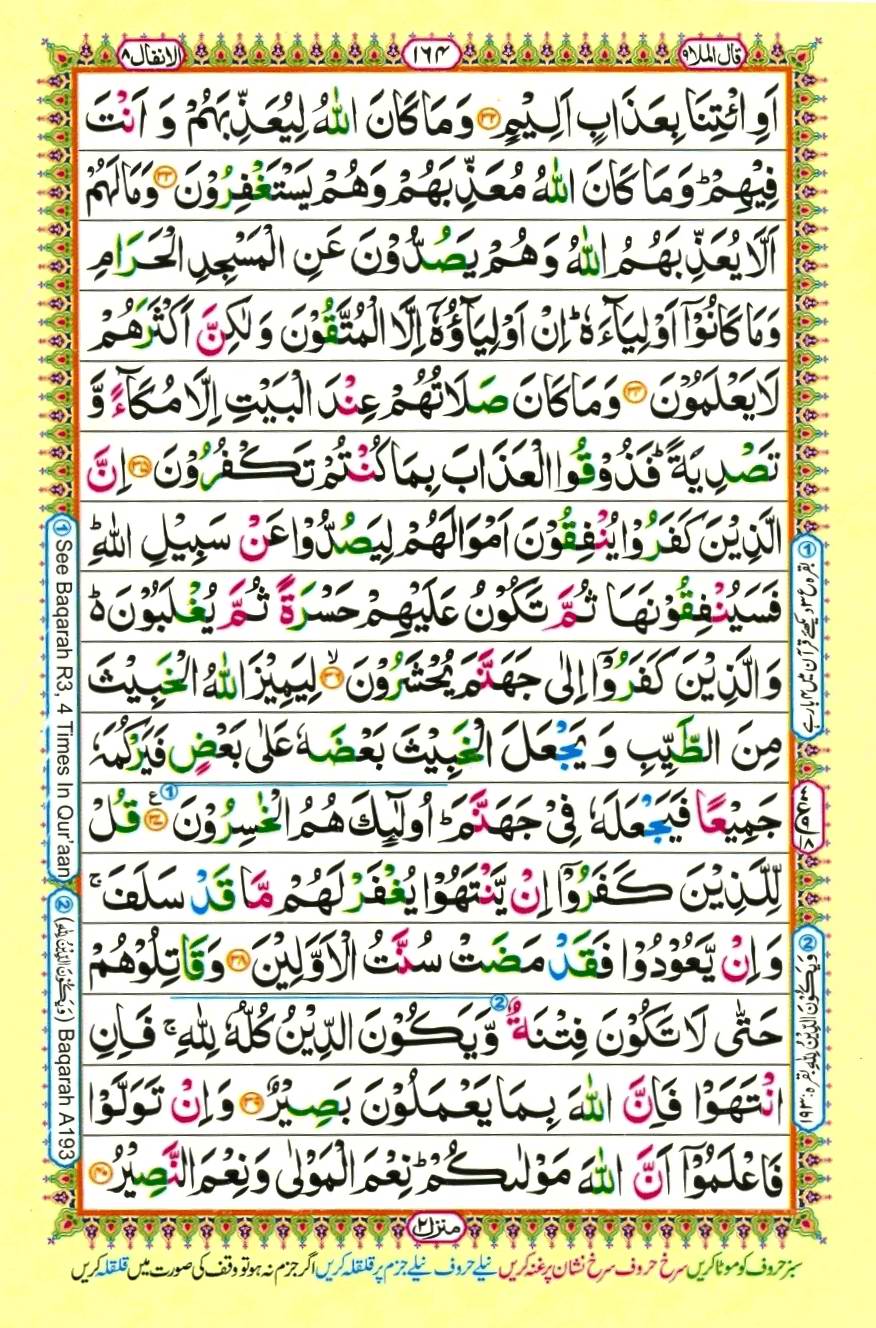 قال الملا ٩
١٦٤
الانفال ٨
اَوِ ائْتِنَا بِعَذَابٍ اَلِيْمٍ ۝۳۲ وَمَا كَانَ اللّٰهُ لِيُعَذِّبَهُمْ وَ اَنْتَ
فِيْهِمْ ؕ وَمَا كَانَ اللّٰهُ مُعَذِّبَهُمْ وَهُمْ يَسْتَغْفِرُوْنَ ۝۳۳ وَمَا لَهُمْ
اَلَّا يُعَذِّبَهُمُ اللّٰهُ وَهُمْ يَصُدُّوْنَ عَنِ الْمَسْجِدِ الْحَرَامِ
وَمَا كَانُوْۤا اَوْلِيَآءَهٗ ؕ اِنْ اَوْلِيَآؤُهٗۤ اِلَّا الْمُتَّقُوْنَ وَلٰكِنَّ اَكْثَرَهُمْ
لَا يَعْلَمُوْنَ ۝۳۴ وَمَا كَانَ صَلَاتُهُمْ عِنْدَ الْبَيْتِ اِلَّا مُكَآءً وَّ
تَصْدِيَةً ؕ فَذُوْقُوا الْعَذَابَ بِمَا كُنْتُمْ تَكْفُرُوْنَ ۝۳۵ اِنَّ
الَّذِيْنَ كَفَرُوْا يُنْفِقُوْنَ اَمْوَالَهُمْ لِيَصُدُّوْا عَنْ سَبِيْلِ اللّٰهِ ؕ
فَسَيُنْفِقُوْنَهَا ثُمَّ تَكُوْنُ عَلَيْهِمْ حَسْرَةً ثُمَّ يُغْلَبُوْنَ ؕ
وَالَّذِيْنَ كَفَرُوْۤا اِلٰى جَهَنَّمَ يُحْشَرُوْنَ ۝۳۶ۙ لِيَمِيْزَ اللّٰهُ الْخَبِيْثَ
مِنَ الطَّيِّبِ وَيَجْعَلَ الْخَبِيْثَ بَعْضَهٗ عَلٰى بَعْضٍ فَيَرْكُمَهٗ
جَمِيْعًا فَيَجْعَلَهٗ فِيْ جَهَنَّمَ ؕ اُولٰٓئِكَ هُمُ الْخٰسِرُوْنَ ۝۳۷ ع ① قُلْ
لِّلَّذِيْنَ كَفَرُوْۤا اِنْ يَّنْتَهُوْا يُغْفَرْ لَهُمْ مَّا قَدْ سَلَفَ ۚ
وَاِنْ يَّعُوْدُوْا فَقَدْ مَضَتْ سُنَّتُ الْاَوَّلِيْنَ ۝۳۸ وَقَاتِلُوْهُمْ
حَتّٰى لَا تَكُوْنَ فِتْنَةٌ ② وَّيَكُوْنَ الدِّيْنُ كُلُّهٗ لِلّٰهِ ۚ فَاِنِ
انْتَهَوْا فَاِنَّ اللّٰهَ بِمَا يَعْمَلُوْنَ بَصِيْرٌ ۝۳۹ وَاِنْ تَوَلَّوْا
فَاعْلَمُوْۤا اَنَّ اللّٰهَ مَوْلٰىكُمْ ؕ نِعْمَ الْمَوْلٰى وَنِعْمَ النَّصِيْرُ ۝۴۰
① بقرہ ع ۳ دیکھئے قرآن میں ۴ بار ہے
② وَيَكُوْنَ الدِّيْنُ لِلّٰهِ بقرہ: ۱۹۳
① See Baqarah R3, 4 Times In Qur'aan
② (وَيَكُوْنَ الدِّيْنُ لِلّٰهِ) Baqarah A193
منزل ٢
سبز حروف کو موٹا کریں سرخ حروف سرخ نشان پر غنہ کریں نیلے حروف نیلے جزم پر قلقلہ کریں اگر جزم نہ ہو تو وقف کی صورت میں قلقلہ کریں